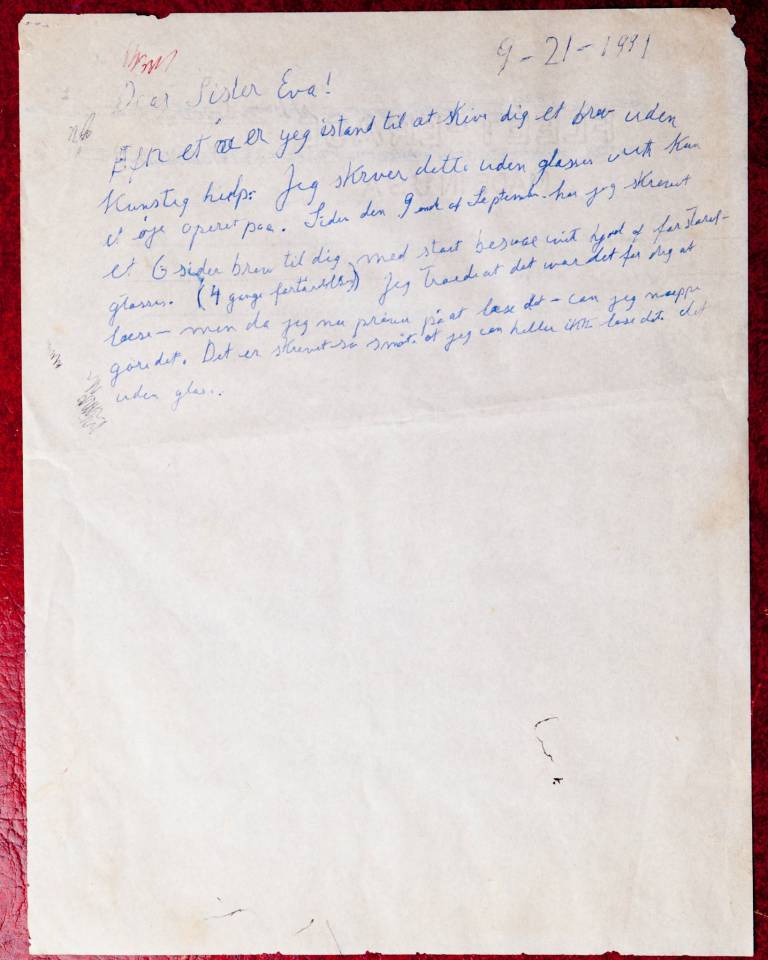 9-21-1991
Dear Sister Eva!
Efter et år er yeg istand til at skive dig et brev uden
Kunstig hielp. Jeg skrver dette uden glasses with kun
et øje operet paa. Siden den 9 end of September har jeg skrevet
et 6 sider brew til dig med start besvae wit hjool of forstørrels-
glasses. (4 gange) Jeg Troede at det war det for dig at
læse - men da jeg nu prøver på at læse det - can jeg næppe
göredet. Det er skrevet så småt at jeg can heller ikke læse det
uden glas.